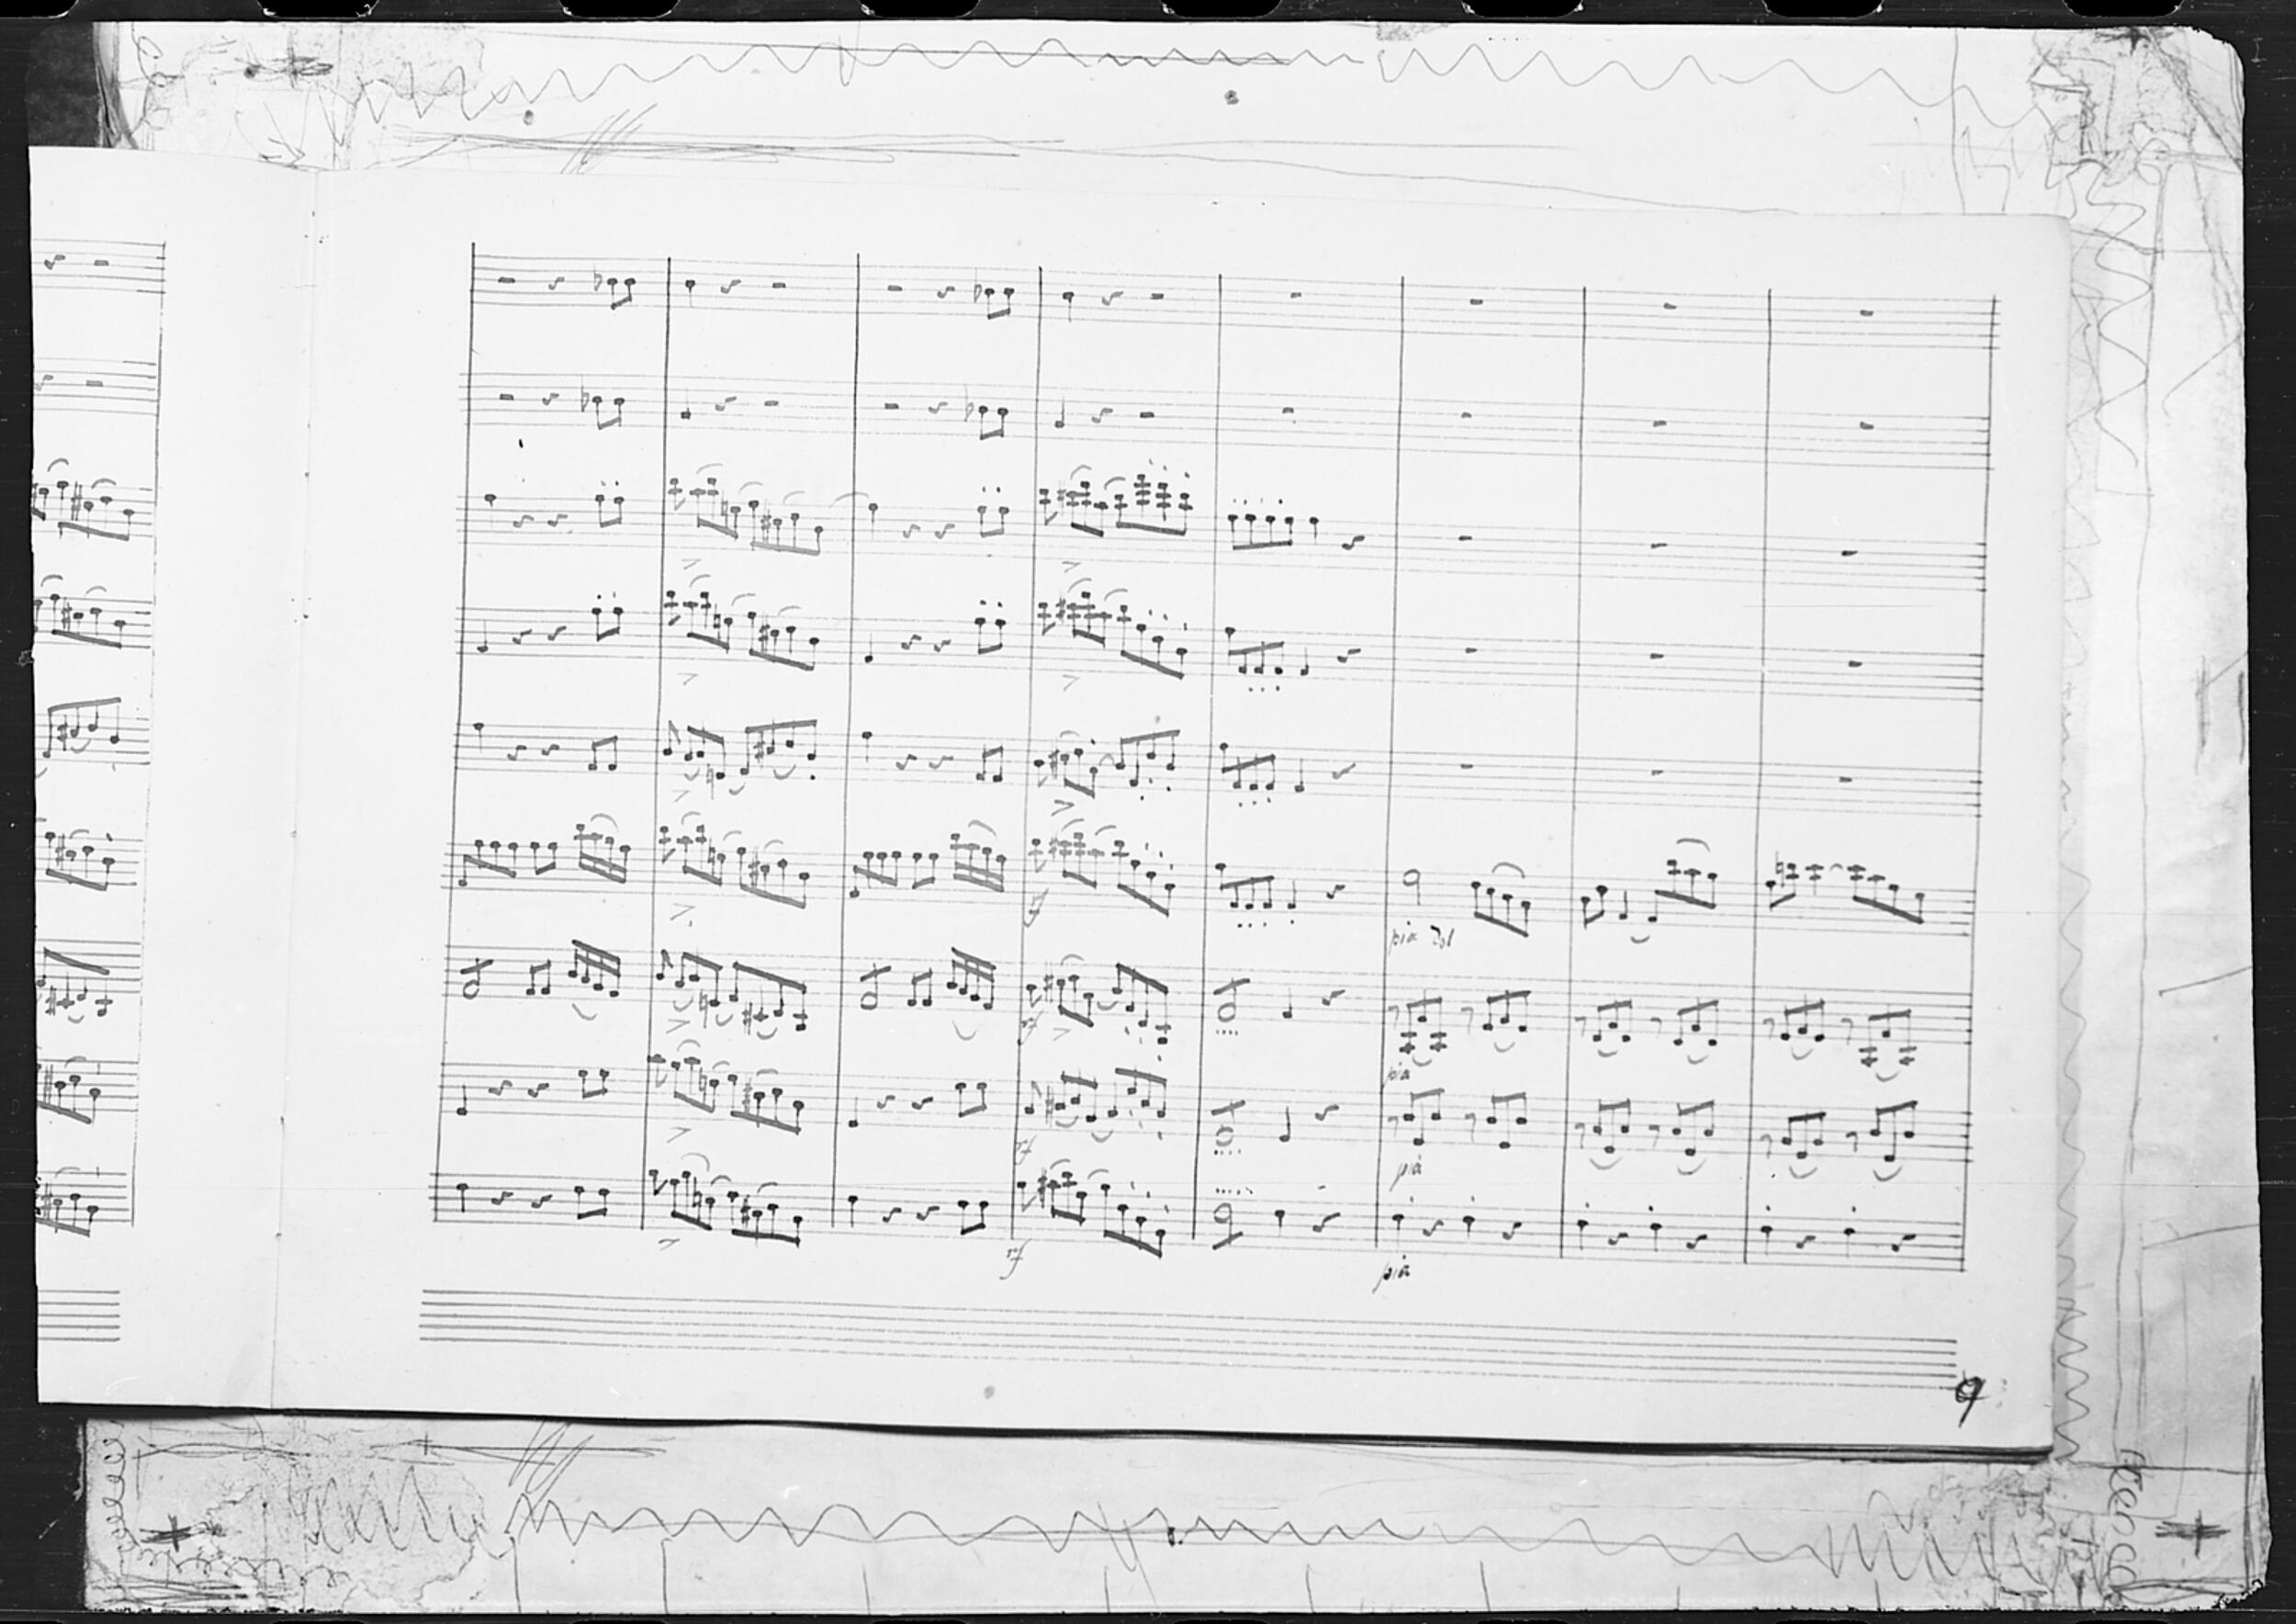 rf
pia dol
rf
pia
rf
pia
rf
pia
9